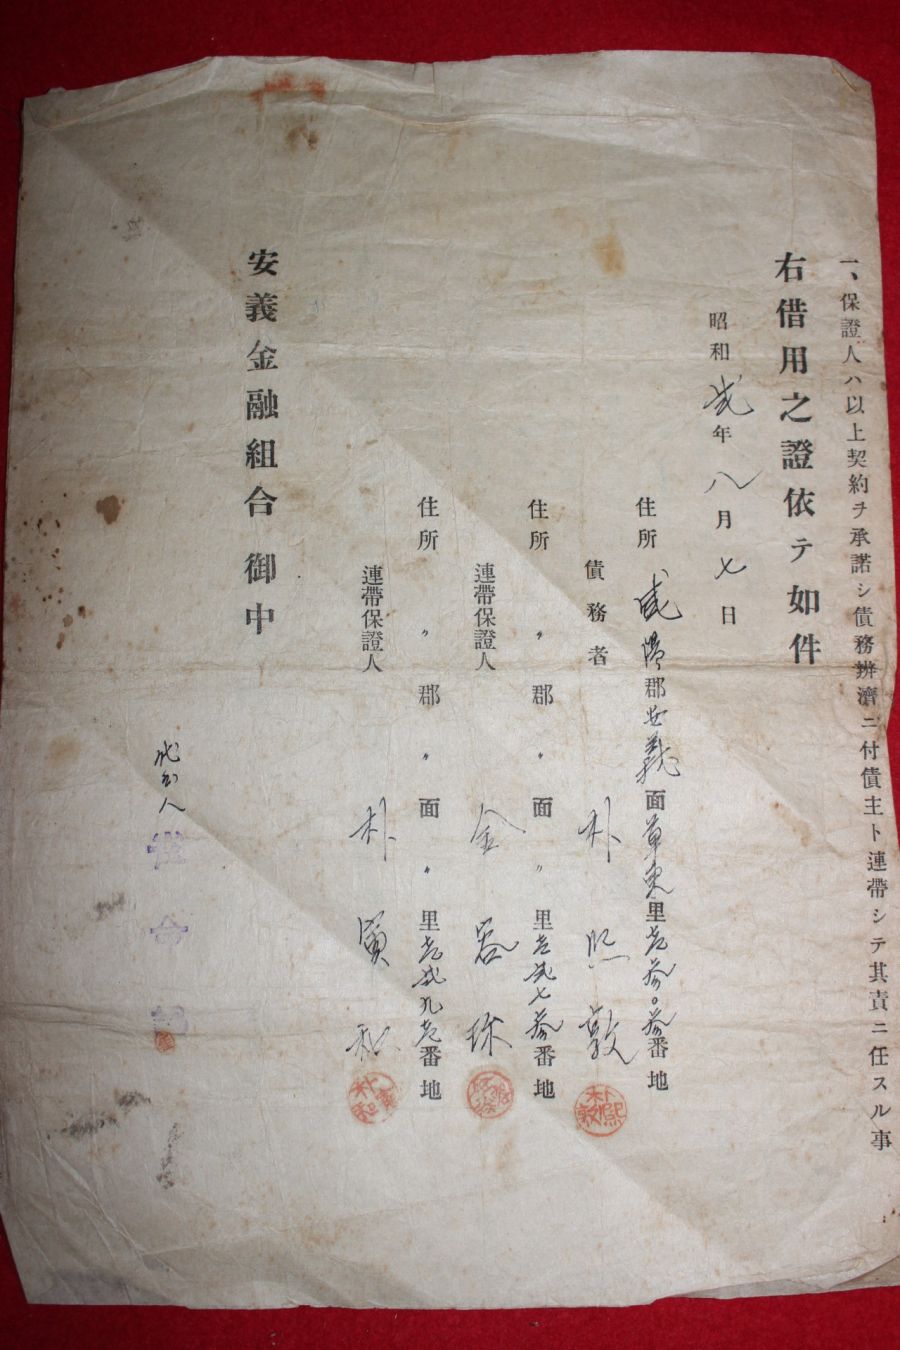 一、保證人ハ以上契約ヲ承諾シ債務辨濟ニ付債主ト連帶シテ其責ニ任スル事
右借用之證依テ如件
昭和弐年八月七日
住所 咸陽郡安義面草東里壱参〇参番地
債務者 朴熙敦
朴熙敦
住所 〃郡〃面〃里壱弐七参番地
連帶保證人 金容珎
住所 〃郡〃面〃里壱弐九壱番地
連帶保證人 朴寅和
安義金融組合 御中
代書人